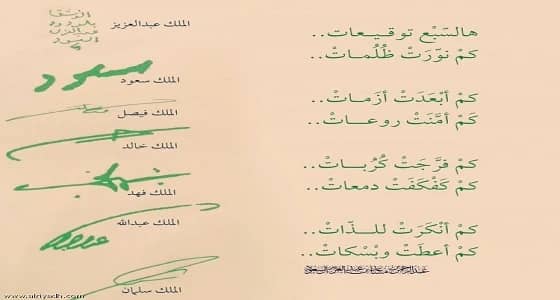 هالسَّبْع توقـيـعات..
كمْ نوّرَتْ ظُلُمـاتْ..
كمْ أبْعَدَتْ أزَمـات..
كَمْ أمَّنَتْ روعـات..
كمْ فرَّجَتْ كُرُبـات..
كمْ كَفْكَفَتْ دمعات..
كمْ أنْكَرَتْ للـذّات..
كمْ أعطَتْ وبْسْكات..
الملك عبدالعزيز
الملك سعود
سعود
الملك فيصل
الملك خالد
الملك فهد
الملك عبدالله
الملك سلمان
www.alriyadh.com